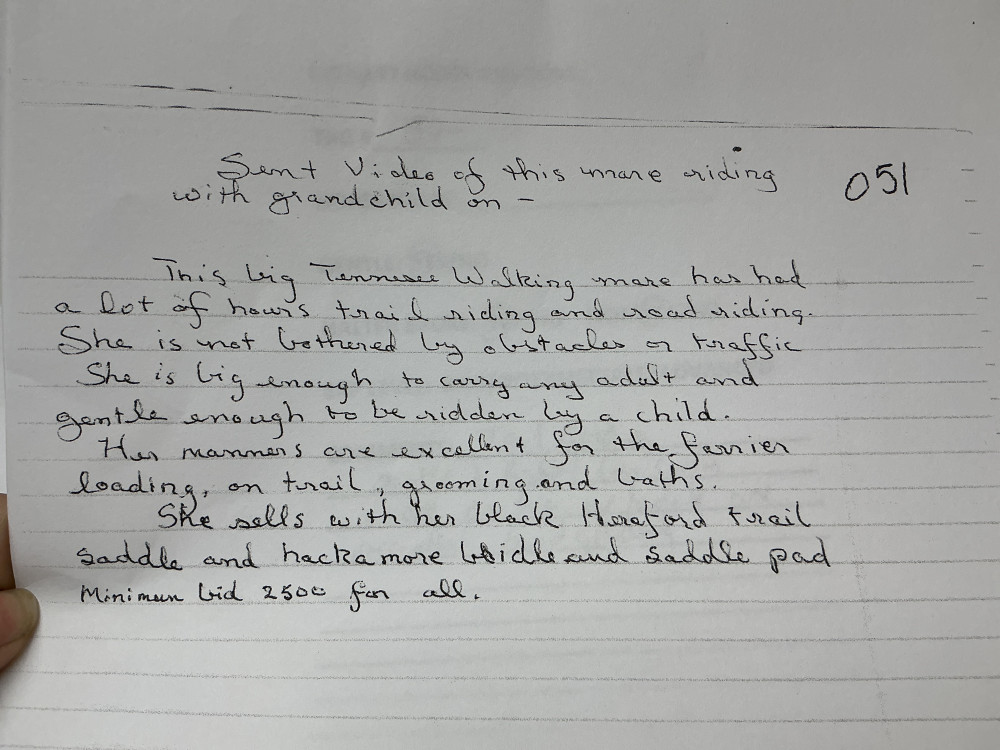 Sent Video of this mare riding
with grandchild on -
051
This big Tennessee Walking mare has had
a lot of hours trail riding and road riding.
She is not bothered by obstacles or traffic
She is big enough to carry any adult and
gentle enough to be ridden by a child.
Her manners are excellent for the farrier
loading, on trail, grooming and baths.
She sells with her black Hereford trail
saddle and hackamore bridle and saddle pad
Minimum bid 2500 for all.